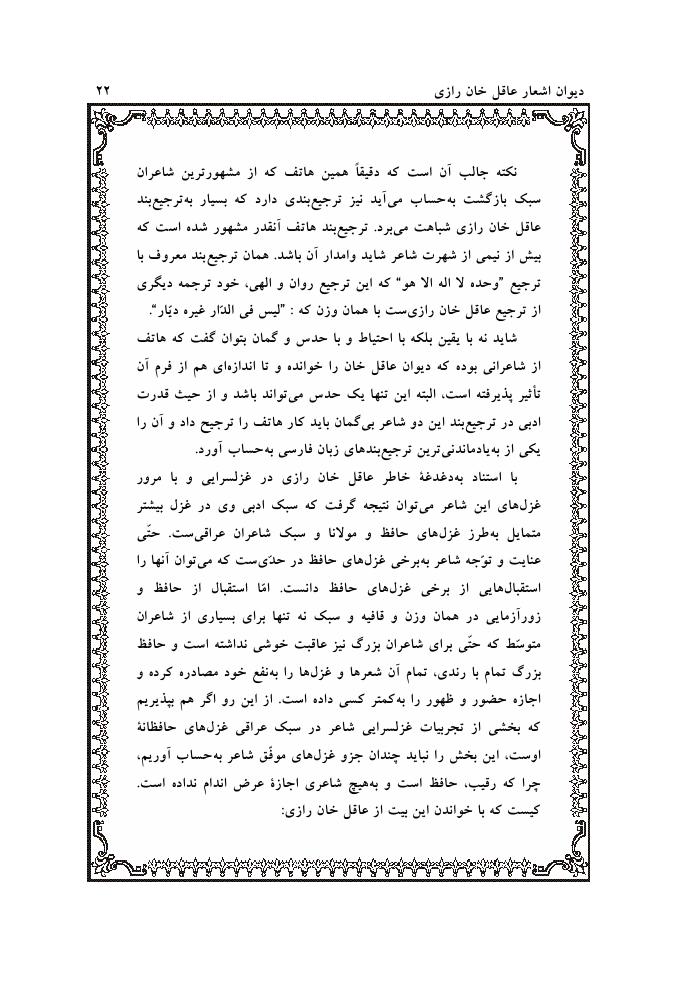 دیوان اشعار عاقل خان رازی ۲۲
نکته جالب آن است که دقیقاً همین هاتف که از مشهورترین شاعران
سبک بازگشت به‌حساب می‌آید نیز ترجیع‌بندی دارد که بسیار به‌ترجیع‌بند
عاقل خان رازی شباهت می‌برد. ترجیع‌بند هاتف آنقدر مشهور شده است که
بیش از نیمی از شهرت شاعر شاید وامدار آن باشد. همان ترجیع‌بند معروف با
ترجیع ”وحده لا اله الا هو“ که این ترجیع روان و الهی، خود ترجمه دیگری
از ترجیع عاقل خان رازی‌ست با همان وزن که : ”لیس فی الدّار غیره دیّار“.
شاید نه با یقین بلکه با احتیاط و با حدس و گمان بتوان گفت که هاتف
از شاعرانی بوده که دیوان عاقل خان را خوانده و تا اندازه‌ای هم از فرم آن
تأثیر پذیرفته است، البته این تنها یک حدس می‌تواند باشد و از حیث قدرت
ادبی در ترجیع‌بند این دو شاعر بی‌گمان باید کار هاتف را ترجیح داد و آن را
یکی از به‌یادماندنی‌ترین ترجیع‌بندهای زبان فارسی به‌حساب آورد.
با استناد به‌دغدغهٔ خاطر عاقل خان رازی در غزلسرایی و با مرور
غزل‌های این شاعر می‌توان نتیجه گرفت که سبک ادبی وی در غزل بیشتر
متمایل به‌طرز غزل‌های حافظ و مولانا و سبک شاعران عراقی‌ست. حتّی
عنایت و توّجه شاعر به‌برخی غزل‌های حافظ در حدّی‌ست که می‌توان آنها را
استقبال‌هایی از برخی غزل‌های حافظ دانست. امّا استقبال از حافظ و
زورآزمایی در همان وزن و قافیه و سبک نه تنها برای بسیاری از شاعران
متوسّط که حتّی برای شاعران بزرگ نیز عاقبت خوشی نداشته است و حافظ
بزرگ تمام با رندی، تمام آن شعرها و غزل‌ها را به‌نفع خود مصادره کرده و
اجازه حضور و ظهور را به‌کمتر کسی داده است. از این رو اگر هم بپذیریم
که بخشی از تجربیات غزلسرایی شاعر در سبک عراقی غزل‌های حافظانهٔ
اوست، این بخش را نباید چندان جزو غزل‌های موفّق شاعر به‌حساب آوریم،
چرا که رقیب، حافظ است و به‌هیچ شاعری اجازهٔ عرض اندام نداده است.
کیست که با خواندن این بیت از عاقل خان رازی: